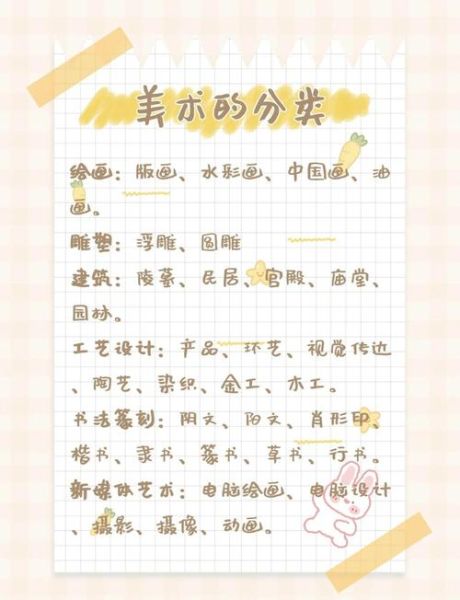 美术的分类
绘画：版画、水彩画、中国画、油
画。
雕塑：浮雕、圆雕
建筑：陵墓、民居、官殿、庙堂、
园林。
工艺设计：产品、环艺、视觉传达
、陶艺、染织、金工、木工。
书法篆刻：阴文、阳文、肖形印、
楷书、隶书、篆书、草书、行书。
新媒体艺术：电脑绘画、电脑设计
、摄影、摄像、动画。